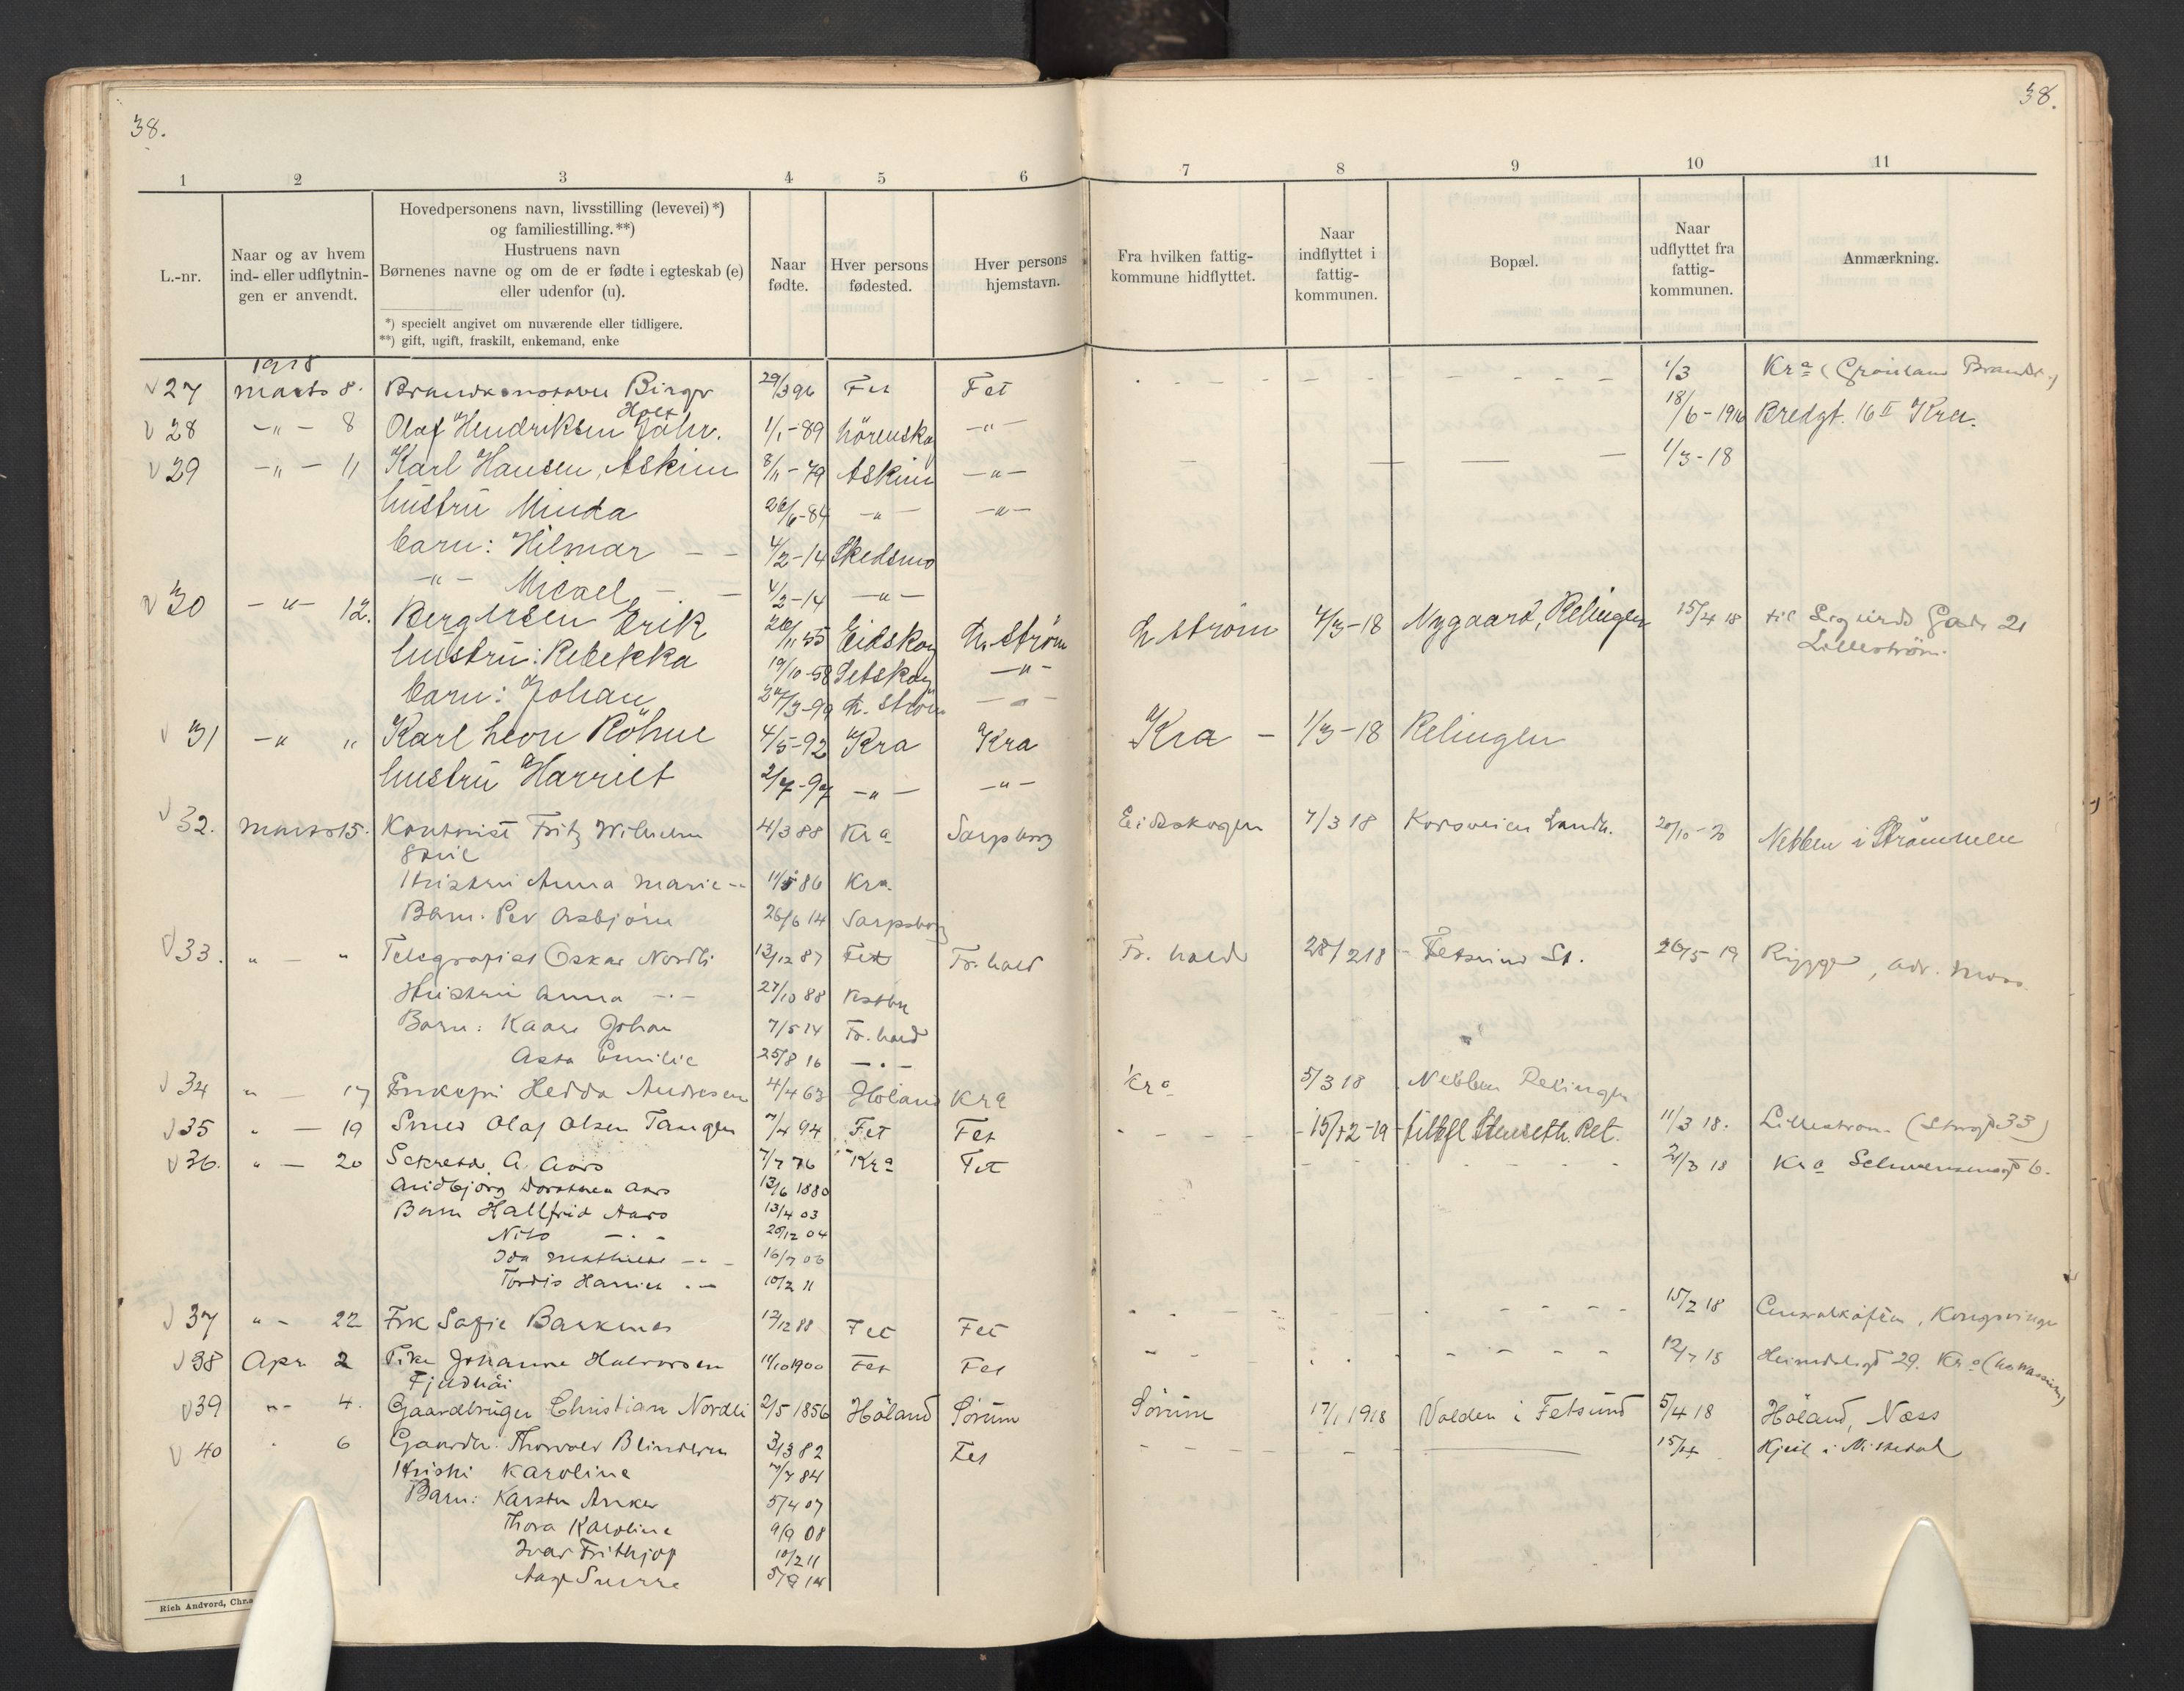 38.
38.
1 2 3 4 5 6 7 8 9 10 11
L.-nr.
Naar og av hvem
ind- eller udflytnin-
gen er anvendt.
Hovedpersonens navn, livsstilling (levevei) *)
og familiestilling. **)
Hustruens navn
Børnenes navne og om de er fødte i egteskab (e)
eller udenfor (u).
*) specielt angivet om nuværende eller tidligere.
**) gift, ugift, fraskilt, enkemand, enke
Naar
fødte.
Hver persons
fødested.
Hver persons
hjemstavn.
Fra hvilken fattig-
kommune hidflyttet.
Naar
indflyttet i
fattig-
kommunen.
Bopæl.
Naar
udflyttet fra
fattig-
kommunen.
Anmærkning.
1918
27 marts 8. Birger 29/3 96 Fet Fet 1/3 Kra
Holt
28 -"- 8 Olaf Hendriksen Jahr. 1/1-89 Lörenskog -"- 18/6-1916 Bredgt. 16 II Kra.
29 -"- 11 Karl Hansen, Askim 8/11-79 Askim -"- 1/3-18
hustru Minda 26/6-84 -"- -"-
barn: Hilmar - - 4/2-14 Skedsmo
-"- Micael - - 4/2-14 -"-
30 -"- 12. Bergersen Erik 26/11 55 Eidskog L. Ström L ström 4/3-18 Nygaard, Relingen 15/4 18 til Sigurds Gade 21
Lilleström.
hustru: Rebekka 19/10-58 Setskog -"-
barn: Johan 27/3-99 L. Ström -"-
31 -" " Karl Leon Röhne 4/5-92 Kra Kra Kra - 1/3-18 Relingen
hustru Harriet 2/7-97 -"- -"-
32. marts 15. Kontorist Fritz Wilhelm 4/3 88 Kra Sarpsborg Eidskogen 7/3 18 Korsveien Landh. 20/10-20 Nebben i Strömmen
Hustru Anna Marie -"- 11/5 86 Kra.
Barn. Per Asbjörn 26/6 14 Sarpsborg
33. " - " Telegrafist Oskar Nordli 13/12 87 Fet Fr. hald Fr. hald 28/2 18 Fetsund St. 26/5-19 Rygge, adr. Moss
Hustru Anna -"- 27/10 88
Barn: Kaare Johan 7/5 14 Fr. hald
Asta Emilie 25/8 16 -"-
34 " - 17 Enkefru Hedda Andresen 4/4 63 Höland Kra Kra 5/3 18 Nebben Relingen
35 " - 19 Smed Olaf Olsen Tangen 7/4 94 Fet Fet 15/12-19 11/3 18. Lilleström (Storgt. 33)
36. " - 20 Sekretær A. Aars 7/7 76 Kra Fet 21/3 18 Kra Schwensensgt 6.
Dorothea Aars 13/6 1880
Barn Hallfrid Aars 13/4 03
Nils -"- 20/12 04
Ida Mathilde -"- 16/7 06
Tordis -"- 10/2 11
37 " - 22 Frk Sofie Barkenes 17/12 88 Fet Fet 15/2 18 Kongsvinger
38 Apr 2 Pike Johanne Halvorsen 11/10 1900 Fet Fet 12/7 15 Heimdalsgt 29. Kra
39 "- 4. Gaardbruger Christian Nordli 2/5 1856 Höland Sörum Sörum 17/1 1918 Volden i Fetsund 5/4 18 Höland, Næss
40 " 6 Gaardbr. Thorvald Blinderen 3/3 82 Fet 15/4 Kjeil i Nittedal
Hustru Karoline 7/7 84
Barn: Karsten Anker 5/4 07
Thora Karoline 9/9 08
Ivar Frithjof 10/2 11
Aage Sverre 5/9 14
Rich Andvord, Chr.a